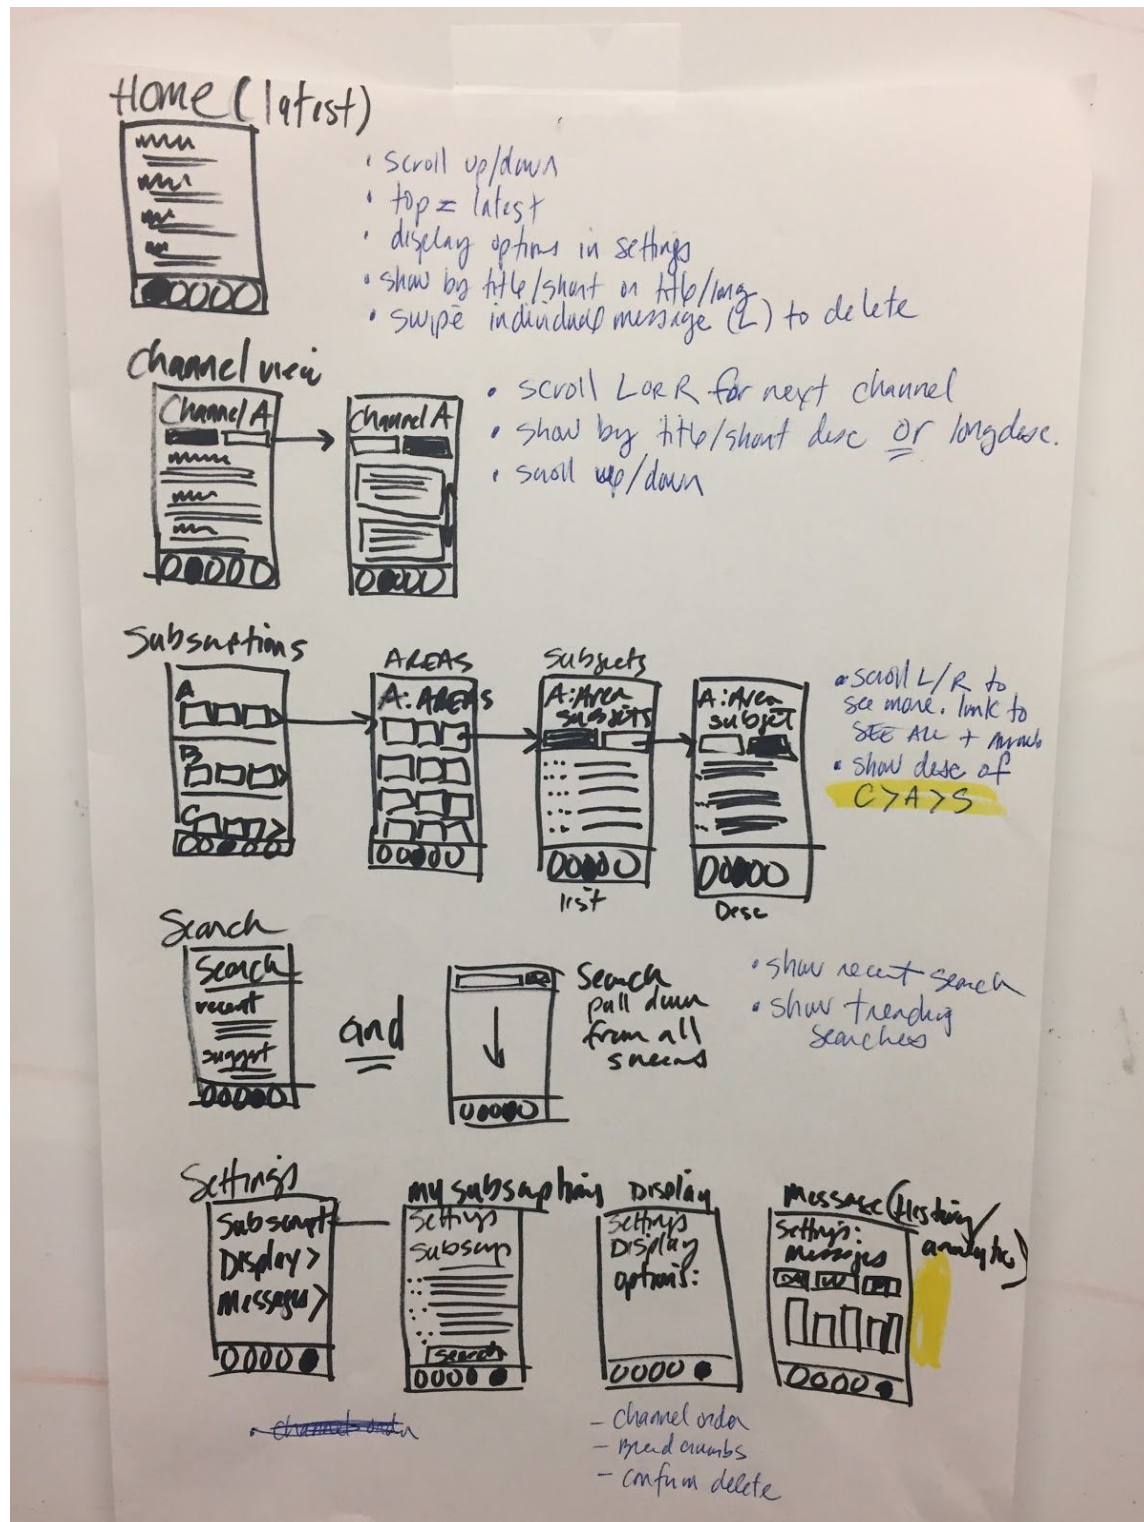 Home (latest)
• scroll up/down
• top = latest
• display options in settings
• show by title/short or title/long
• swipe individual message (L) to delete
Channel view
Channel A
Channel A
• scroll L or R for next channel
• show by title/short desc or long desc.
• scroll up/down
Subscriptions
A
B
C
AREAS
A: AREAS
Subjects
A: Area
subjects
list
A: Area
subject
Desc
• scroll L/R to
see more. link to
SEE ALL +
• show desc of
C>A>S
Search
Search
recent
suggest
and
Search
pull down
from all
screens
• show recent search
• show trending
searches
Settings
Subscript
Display >
messages >
my subscriptions
Settings
Subscrip
search
Display
Settings
Display
options:
message (History/
analytics)
Settings:
messages
D W M
• channel order
- channel order
- Bread crumbs
- confirm delete